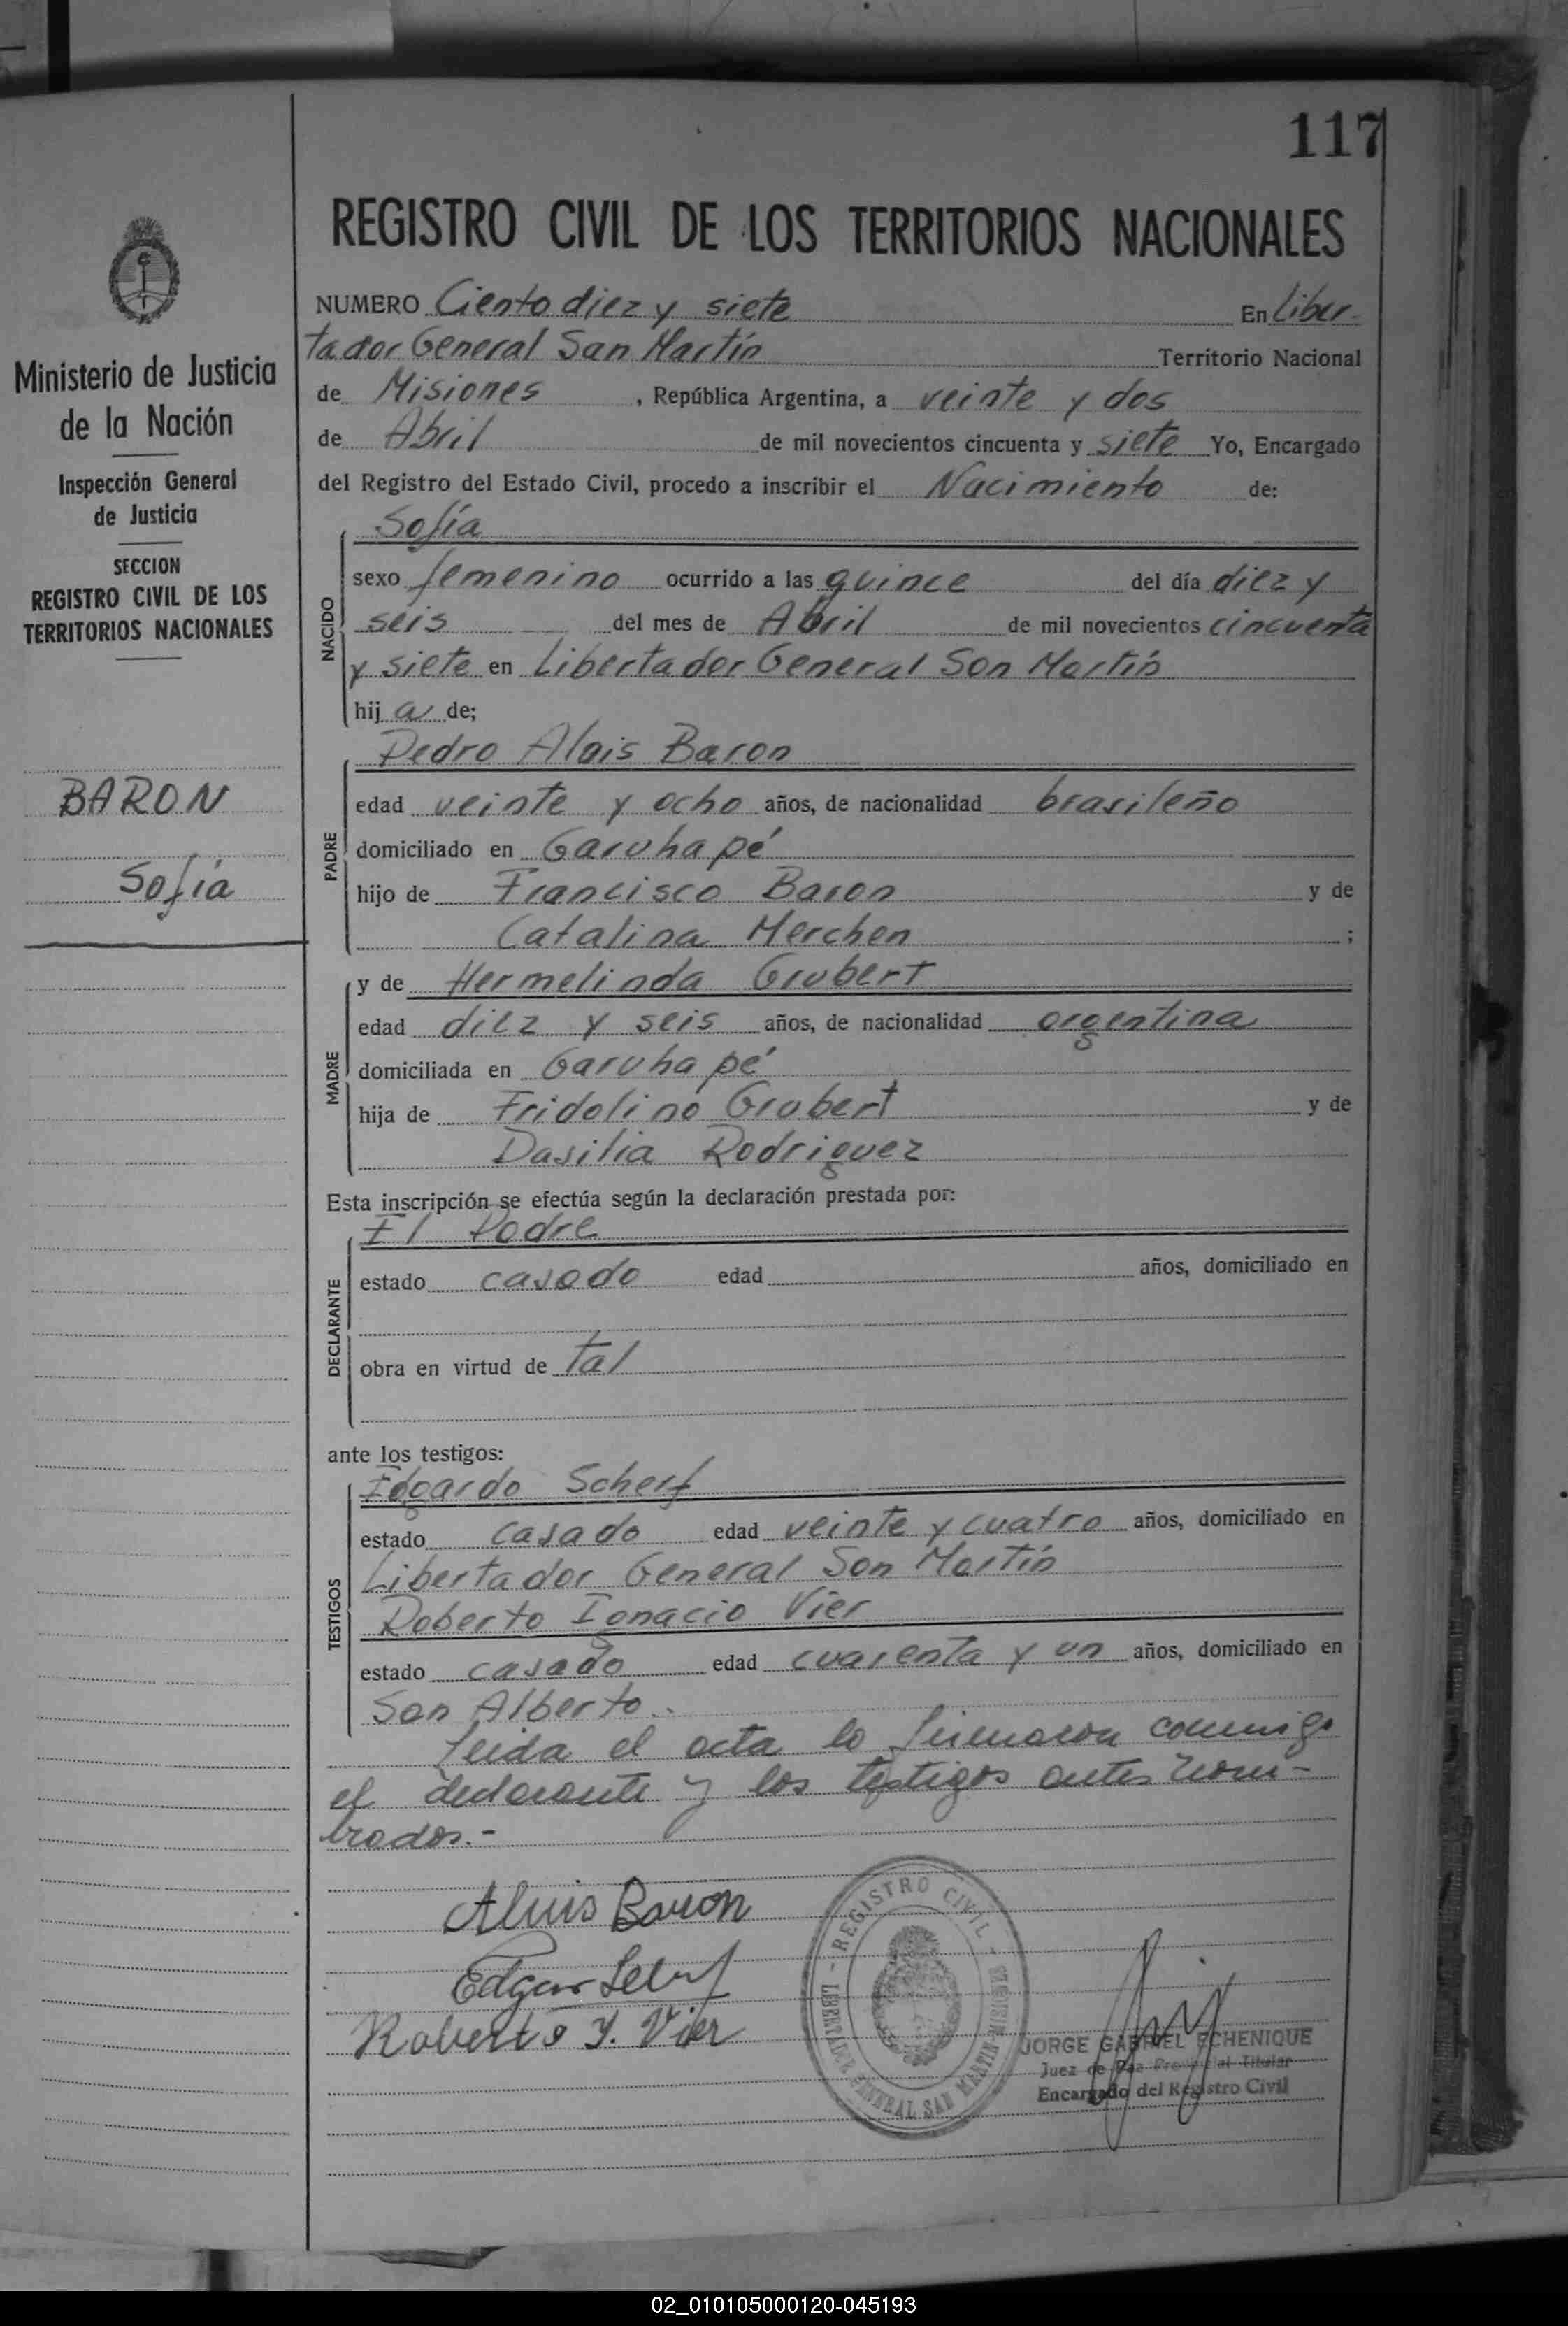 117
REGISTRO CIVIL DE LOS TERRITORIOS NACIONALES
NUMERO Ciento diez y siete En Liber-
tador General San Martín Territorio Nacional
de Misiones , República Argentina, a veinte y dos
de Abril de mil novecientos cincuenta y siete Yo, Encargado
del Registro del Estado Civil, procedo a inscribir el Nacimiento de:
Ministerio de Justicia
de la Nación
Inspección General
de Justicia
SECCION
REGISTRO CIVIL DE LOS
TERRITORIOS NACIONALES
BARON
Sofía
NACIDO
Sofía
sexo femenino ocurrido a las quince del día diez y
seis del mes de Abril de mil novecientos cincuenta
y siete en Libertador General San Martín
hij a de;
PADRE
Pedro Alois Baron
edad veinte y ocho años, de nacionalidad brasileño
domiciliado en Garuhapé
hijo de Francisco Baron y de
Catalina Merchen ;
MADRE
y de Hermelinda Grubert
edad diez y seis años, de nacionalidad argentina
domiciliada en Garuhapé
hija de Fridolino Grubert y de
Dasilia Rodriguez
Esta inscripción se efectúa según la declaración prestada por:
DECLARANTE
El Padre
estado casado edad años, domiciliado en
obra en virtud de tal
ante los testigos:
TESTIGOS
Edgardo Scherf
estado casado edad veinte y cuatro años, domiciliado en
Libertador General San Martín
Roberto Ignacio Vier
estado casado edad cuarenta y un años, domiciliado en
San Alberto.-
Leida el acta lo firmaron conmigo
el declarante y los testigos antes nom-
brados.-
Aluis Baron
Edgar
Roberto Y. Vier
- REGISTRO CIVIL - MISIONES
LIBERTADOR GENERAL SAN MARTIN
JORGE GABRIEL ECHENIQUE
Juez de Paz Provincial Titular
Encargado del Registro Civil
02_010105000120-045193